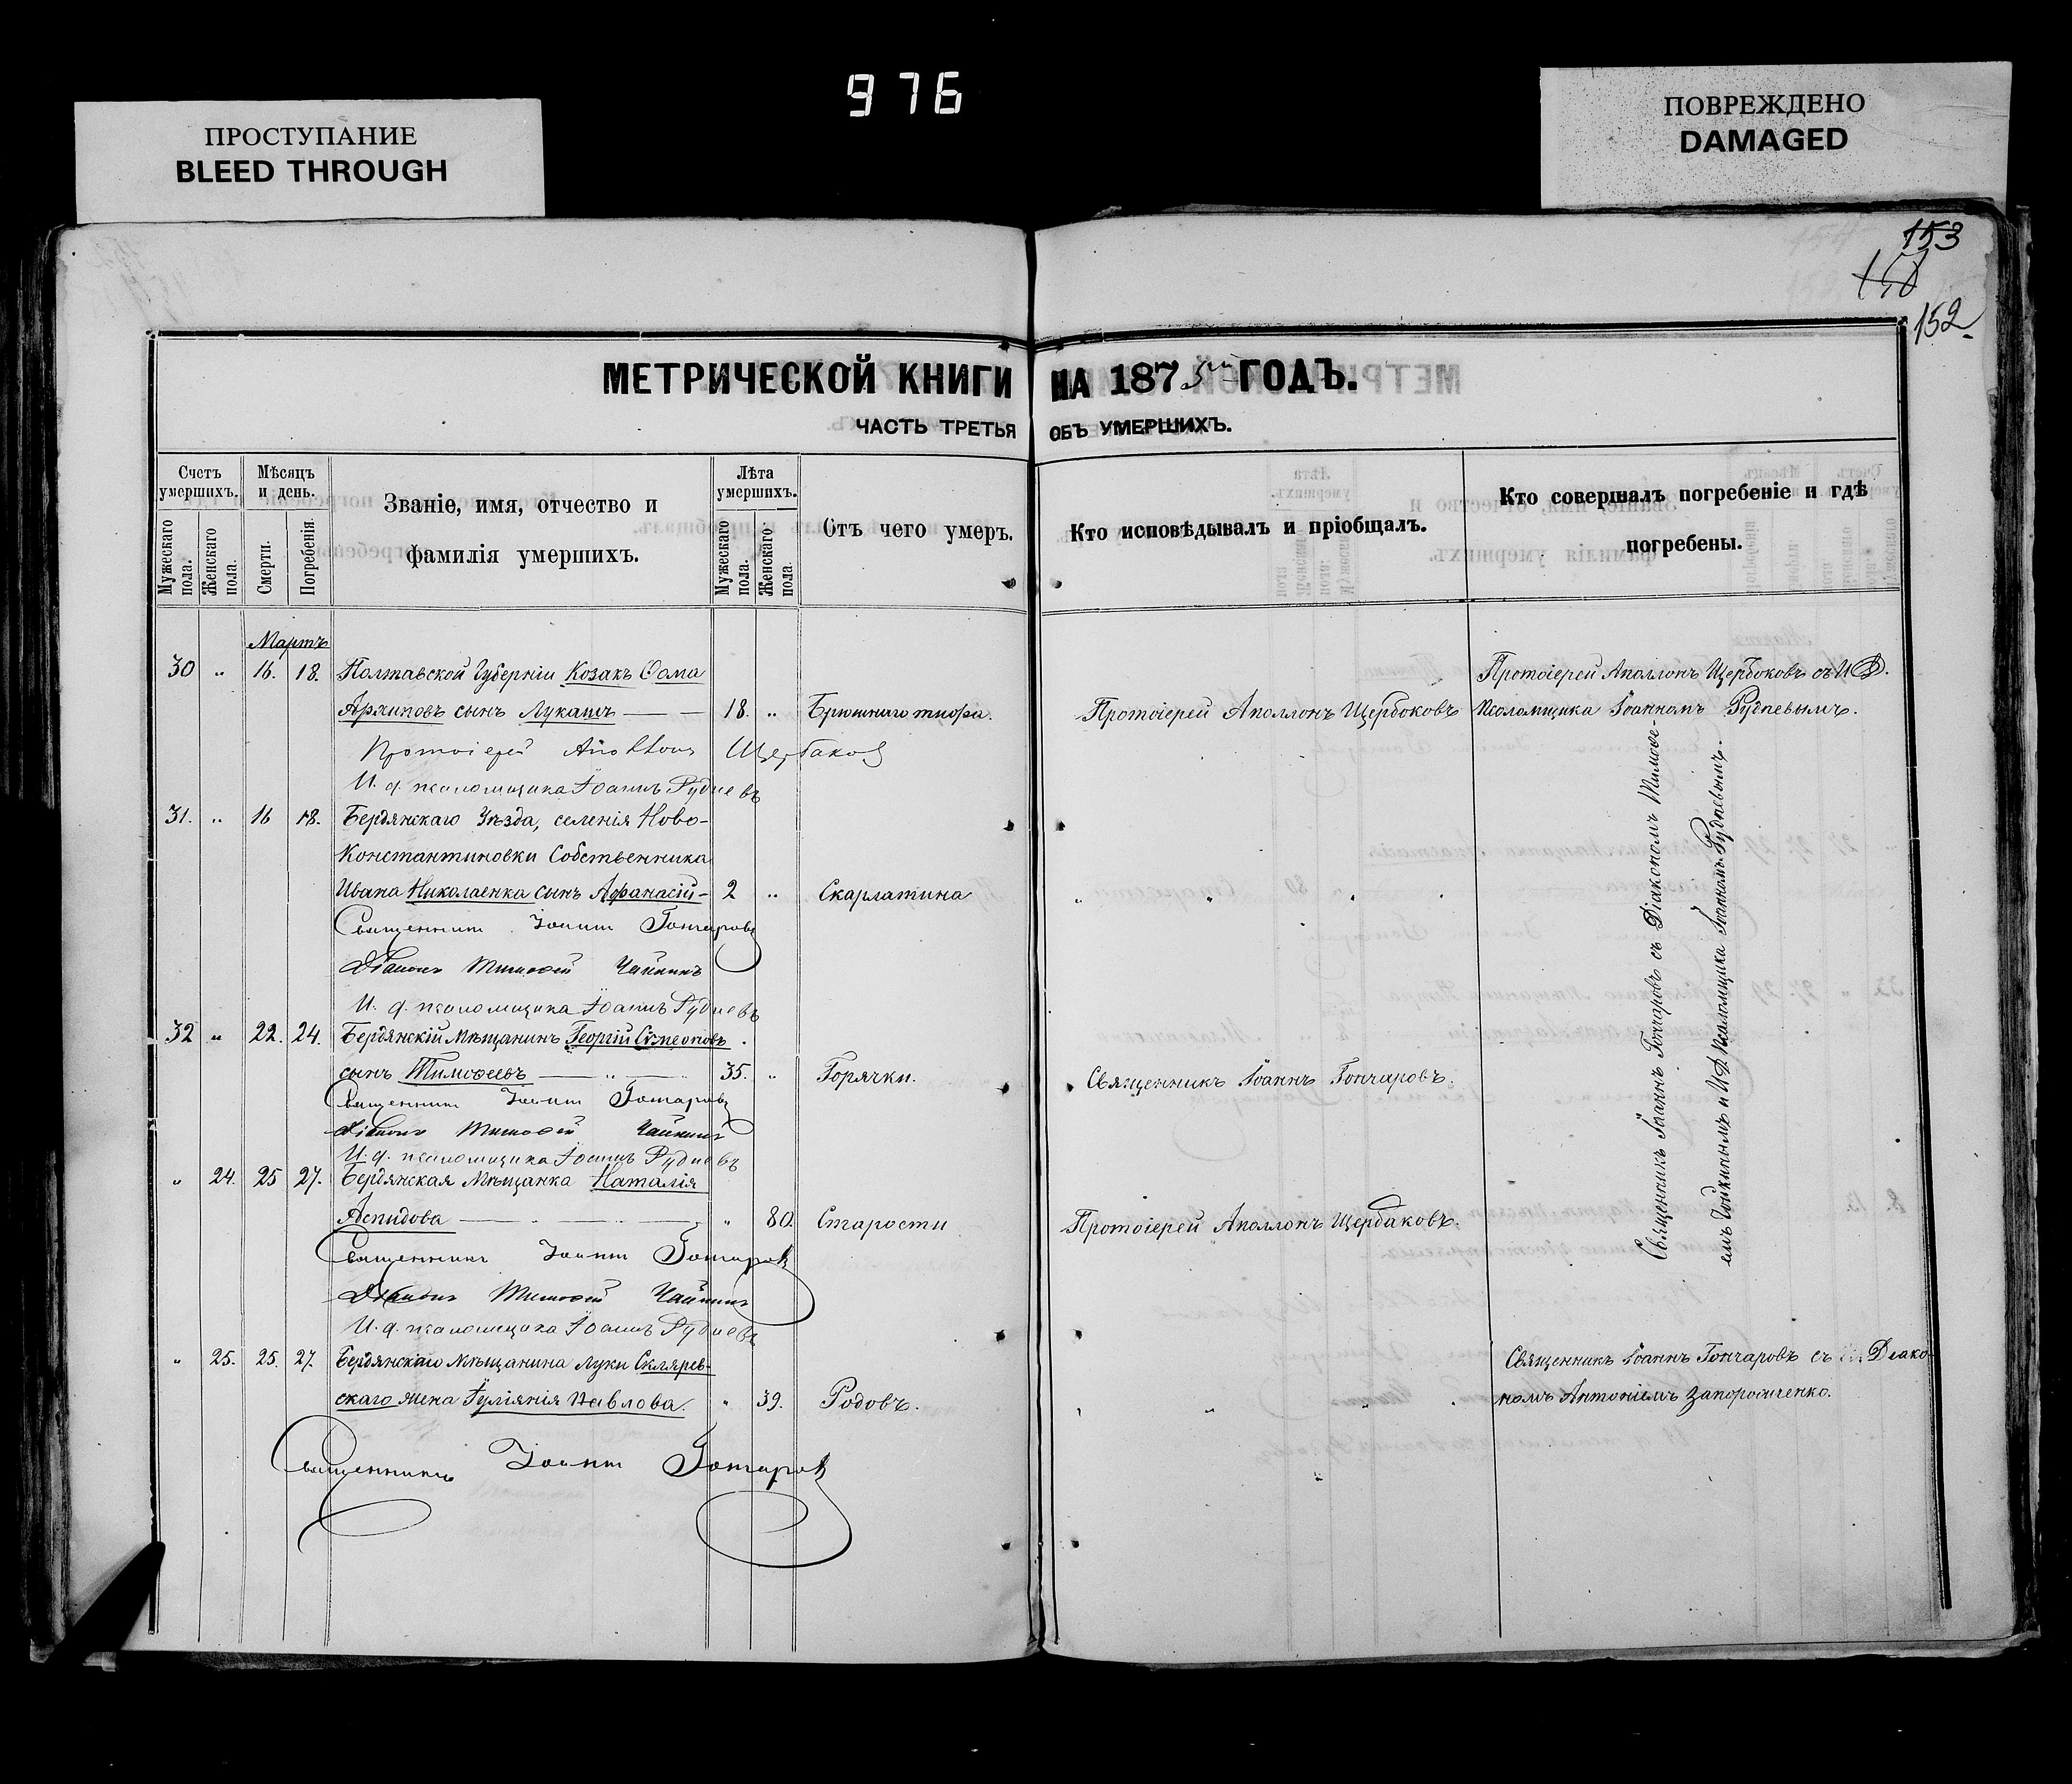 976
ПРОСТУПАНИЕ
BLEED THROUGH
ПОВРЕЖДЕНО
DAMAGED
153
152
МЕТРИЧЕСКОЙ КНИГИ НА 1875 ГОДЪ.
ЧАСТЬ ТРЕТЬЯ ОБЪ УМЕРШИХЪ.
Счетъ умершихъ.
Мужескаго пола.
Женскаго пола.
Мѣсяцъ и день.
Смерти.
Погребенія.
Званіе, имя, отчество и
фамилія умершихъ.
Лѣта умершихъ.
Мужескаго пола.
Женскаго пола
Отъ чего умеръ.
Кто исповѣдывалъ и пріобщалъ.
Кто совершалъ погребеніе и гдѣ
погребены.
Мартъ
30 " 16. 18. Полтавской Губерніи Козакъ Ѳома
Архиповъ сынъ Лукашъ 18. " Брюшнаго тифа.
Протоіерей Аполлонъ Щербоковъ
Протоіерей Аполлонъ Щербоковъ съ И Д.
Псаломщика Іоанномъ Рудневымъ.
Протоіерей Аполлонъ Щербаков
И. д. псаломщика Іоаннъ Рудневъ
31. " 16 18. Бердянскаго Уѣзда, селенія Ново-
Константиновки Собственника
Ивана Николаенка сынъ Афанасій- 2 " Скарлатина
" " " "
Священник Іоанн Гончаровъ
Діаконъ Тимофей Чайкинъ
И. д. псаломщика Іоаннъ Рудневъ
32 " 22. 24. Бердянскій Мѣщанинъ Георгій Симеоновъ
сынъ Тимофеевъ 35. " Горячки.
Священникъ Іоаннъ Гончаровъ.
Священник Іоанн Гончаровъ
Діаконъ Тимофей Чайкинъ
И. д. псаломщика Іоаннъ Рудневъ
" 24. 25 27. Бердянская Мѣщанка Наталія
Аспидова " 80. Старости
Протоіерей Аполлонъ Щербаковъ.
Священникъ Іоанн Гончаров
Діаконъ Тимофей Чайкинъ
И. д. псаломщика Іоаннъ Рудневъ
Священникъ Іоаннъ Гончаровъ съ Діакономъ Тимофе-
емъ Чайкинымъ и И Д Псаломщика Іоанномъ Рудневымъ.
" 25. 25. 27. Бердянскаго Мѣщанина Луки Скляров-
скаго жена Іуліянія Павлова. " 39. Родовъ.
" " "
Священникъ Іоаннъ Гончаровъ съ Діако-
номъ Антоніемъ Запорожченко.
Священникъ Іоанн Гончаров